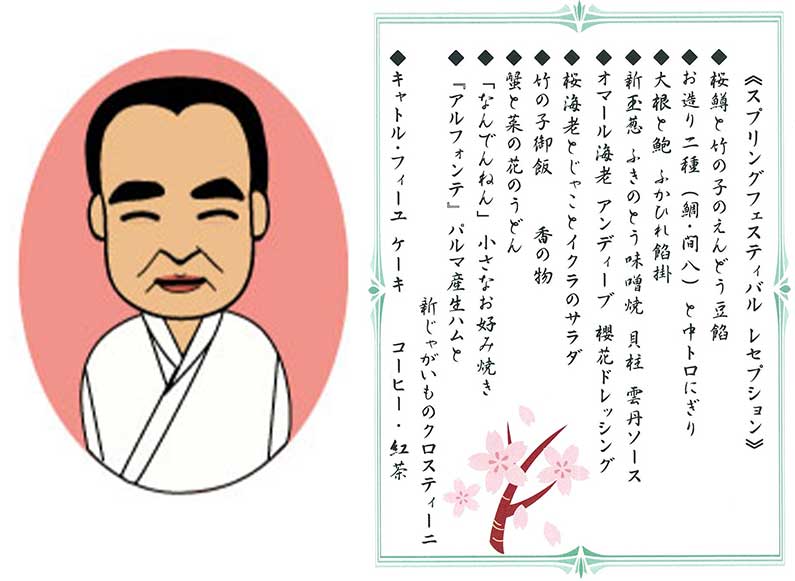 《スプリングフェスティバル レセプション》
◆ 桜鱒と竹の子のえんどう豆餡
◆ お造り二種（鯛・間八）と中トロにぎり
◆ 大根と鮑 ふかひれ餡掛
◆ 新玉葱 ふきのとう味噌焼 貝柱 雲丹ソース
◆ オマール海老 アンディーブ 櫻花ドレッシング
◆ 桜海老とじゃことイクラのサラダ
◆ 竹の子御飯 香の物
◆ 蟹と菜の花のうどん
◆ 「なんでんねん」小さなお好み焼き
◆ 『アルフォンテ』パルマ産生ハムと
新じゃがいものクロスティーニ
◆ キャトル・フィーユ ケーキ コーヒー・紅茶